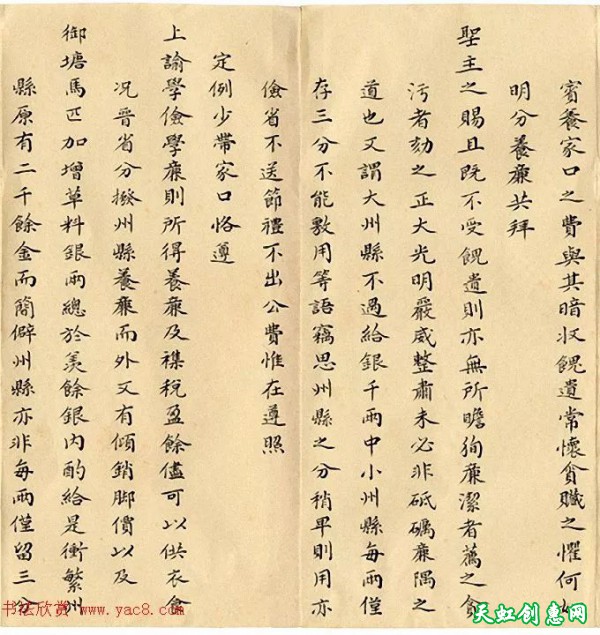 賓養家口之費與其暗收餽遺常懷貪贓之懼何如
明分養廉共拜
聖主之賜且既不受餽遺則亦無所瞻徇廉潔者薦之貪
污者劾之正大光明嚴威整肅未必非砥礪廉隅之
道也又謂大州縣不過給銀千兩中小州縣每兩僅
存三分不能敷用等語竊思州縣之分稍卑則用亦
儉省不送節禮不出公費惟在遵照
定例少帶家口恪遵
上諭學儉學廉則所得養廉及襍稅盈餘儘可以供衣食
况晉省分撥州縣養廉而外又有傾銷脚價以及
御塘馬匹加增草料銀兩總於羡餘銀內酌給是衝繁州
縣原有二千餘金而簡僻州縣亦非每兩僅留三分
书法欣赏 www.yac8.com
天虹创惠网